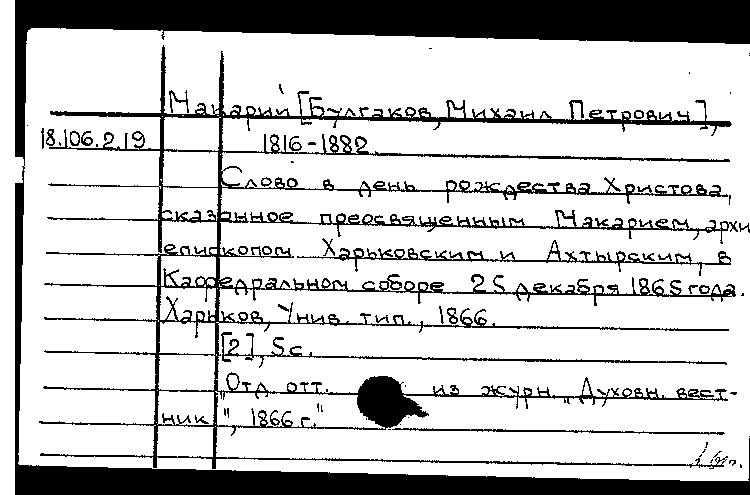 Макарий [Булгаков, Михаил Петрович],
18.106.2.19 1816-1882
Слово в день рождества Христова,
сказанное преосвященным Макарием, архи
епископом Харьковским и Ахтырским, в
Кафедральном соборе 25 декабря 1865 года.
Харьков, Унив. тип., 1866.
[2], 5 с.
"Отд. отт. из журн. "Духовн. вест-
ник", 1866 г."